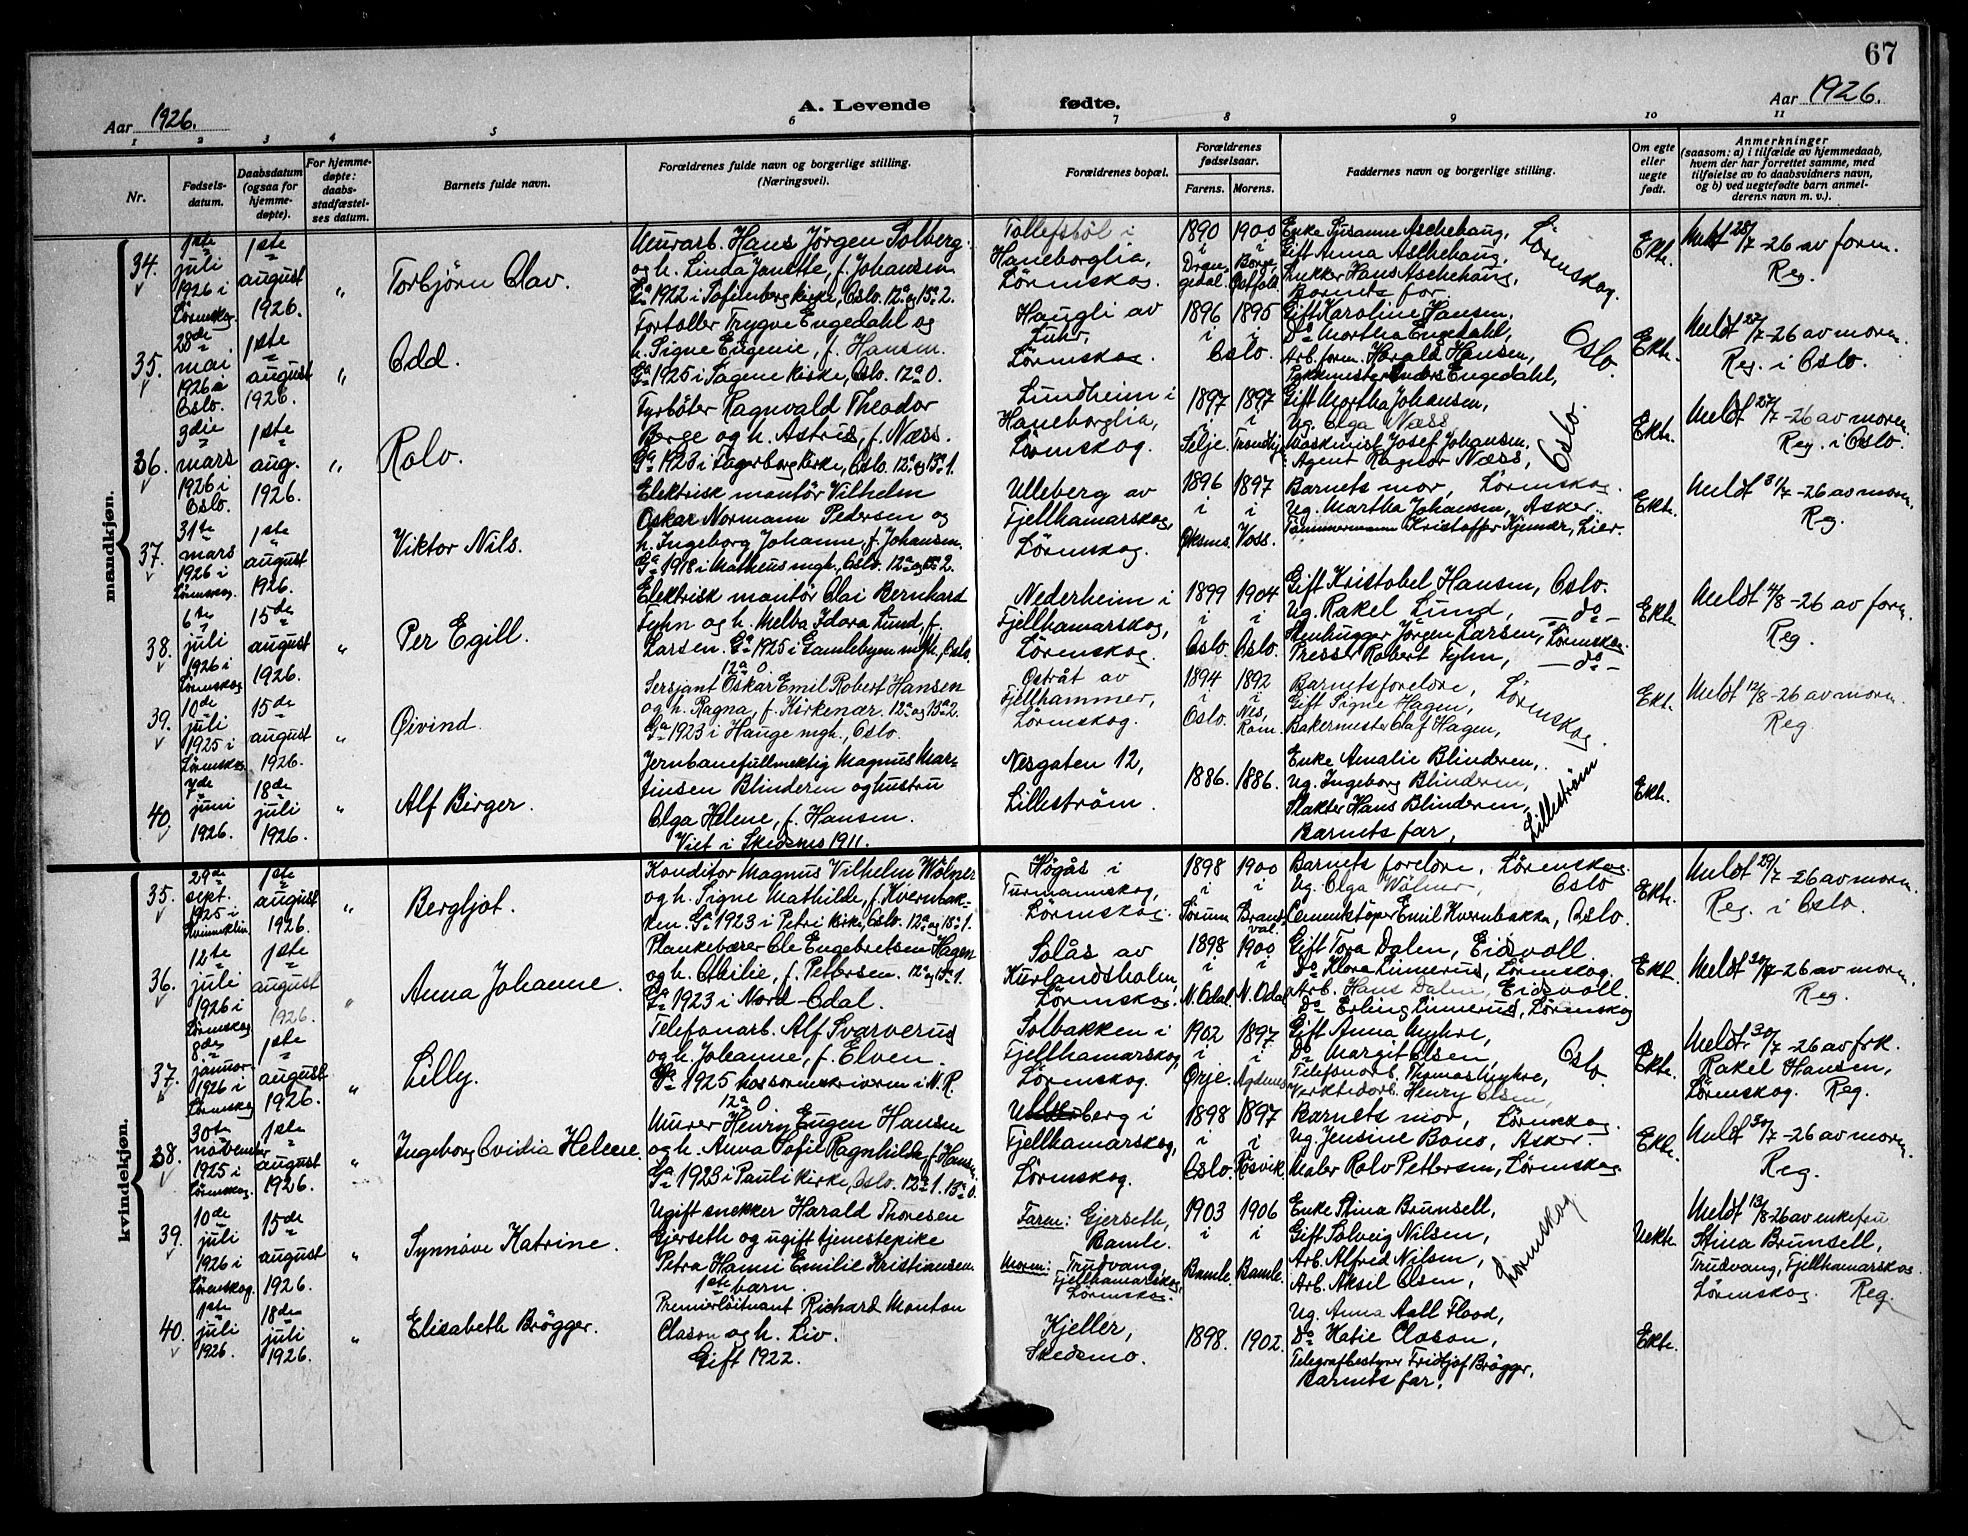 67
Aar 1926.
A. Levende fødte.
Aar 1926.
1 2 3 4 5 6 7 8 9 10 11
Nr.
Fødsels-
datum.
Daabsdatum
(ogsaa for
hjemme-
døpte).
For hjemme-
døpte:
daabs-
stadfæstel-
ses datum.
Barnets fulde navn.
Forældrenes fulde navn og borgerlige stilling.
(Næringsvei).
Forældrenes bopæl.
Forældrenes
fødselsaar.
Farens. Morens.
Faddernes navn og borgerlige stilling.
Om egte
eller
uegte
født.
Anmerkninger
(saasom: a) i tilfælde av hjemmedaab,
hvem der har forrettet samme, med
tilføielse av to daabsvidners navn,
og b) ved uegtefødte barn anmel-
derens navn m. v.).
mandkjøn.
34.
1ste
juli
1926 i
Lörenskog.
1ste
august
1926.
"
Torbjörn Olav.
Murarb. Hans Jörgen Solberg
og h. Linda Janette, f. Johansen
Ga 1922 i Sofienberg kirke, Oslo. 12a og 13a 2.
Tollefsböl i
Haneborglia,
Lörenskog.
1890
i
Dran-
gedal.
1900
i
Borge,
Östfold.
Enke Susanne Aschehaug,
Gift Anna Aschehaug,
Snekker Hans Aschehaug,
Barnets far.
Lörenskog.
Ekte.
Meldt 28/7-26 av faren.
Reg.
35.
28de
mai
1926 i
Oslo.
1ste
august
1926.
"
Odd.
Fortoller Trygve Engedahl og
h. Signe Eugenie, f. Hansen.
Ga 1925 i Sagene kirke, Oslo. 12a 0.
Haugli av
Luhr,
Lörenskog.
1896
i
1895
i
Oslo.
Gift Karoline Hansen,
Do Martha Engedahl,
Arb. form. Harald Hansen,
Pakkmester Anders Engedahl,
Oslo.
Ekte.
Meldt 27/7-26 av moren
Reg. i Oslo.
36.
3die
mars
1926 i
Oslo.
1ste
aug.
1926.
"
Rolv.
Fyrböter Ragnvald Theodor
Berge og h. Astrid, f. Næss.
Ga 1923 i Fagerborg kirke, Oslo. 12a og 13a 1.
Lundheim i
Haneborglia,
Lörenskog.
1897
i
Selje.
1897
i
Trondhj.
Gift Martha Johansen,
Ug. Olga Næss
Maskinist Josef Johansen,
Agent Ragnar Næss,
Oslo.
Ekte.
Meldt 27/7-26 av moren.
Reg. i Oslo.
37.
31te
mars
1926 i
Lörenskog.
1ste
august
1926.
Viktor Nils.
Elektrisk montör Vilhelm
Oskar Normann Pedersen og
h. Ingeborg Johanne, f. Johansen.
Ga 1918 i Matheus mgh, Oslo. 12a og 13a 2.
Ulleberg av
Fjellhamarskog,
Lörenskog.
1896
i
1897
i
Voss.
Barnets mor, Lörenskog.
Ug. Martha Johansen, Asker.
Tömmermann Kristoffer Kjemær, Lier.
Ekte.
Meldt 31/7-26 av moren.
Reg.
38.
6te
juli
1926 i
Lörenskog
15de
august
1926.
"
Per Egill.
Elektrisk montör Olai Bernhard
Fyhn og h. Melba Idora Lund, f.
Larsen. Ga 1925 i Gamlebyen mgh, Oslo.
12a 0.
Nederheim i
Fjellhamarskog,
Lörenskog.
1899
i
Oslo.
1904
i
Oslo.
Gift Kristobel Hansen, Oslo.
Ug. Rakel Lund, - do -
Stenhugger Jörgen Larsen, Lörenskog.
Presser Robert Fyhn, - do -
Ekte.
Meldt 4/8-26 av faren.
Reg.
39.
10de
juli
1925 i
Lörenskog
15de
august
1926.
"
Öivind.
Sersjant Oskar Emil Robert Hansen
og h. Ragna, f. Kirkenær. 12a og 13a 2.
Ga 1923 i Hauge mgh, Oslo.
Östråt av
Fjellhammer,
Lörenskog.
1894
i
Oslo.
1892
i
Nes,
Rom.
Barnets foreldre,
Gift Signe Hagen,
Bakermester Olaf Hagen,
Lörenskog.
Ekte.
Meldt 12/8-26 av moren.
Reg.
40.
7de
juni
1926.
18de
juli
1926.
"
Alf Birger.
Jernbanefullmektig Magnus Mar-
tinsen Blinderen og hustru
Olga Helene, f. Hansen.
Viet i Skedsmo 1911.
Nesgaten 12,
Lilleström.
1886. 1886.
Enke Amalie Blinderen,
Ug. Ingeborg Blinderen,
Slakter Hans Blinderen,
Barnets far,
Lilleström
Ekte.
kvindekjøn.
35.
29de
sept.
1925 i
Kvinneklin.
1ste
august
1926.
"
Bergljot.
Konditor Magnus Vilhelm Wölner
og h. Signe Mathilde, f. Kvernbak-
ken. Ga 1923 i Petri kirke, Oslo. 12a og 13a 1.
Högås i
Turmannskog,
Lörenskog.
1898
i
Sörum
1900
i
Brand-
val.
Barnets foreldre, Lörenskog.
Ug. Olga Wölner, Oslo
Cementstöper Emil Kvernbakken, Oslo.
Ekte.
Meldt 29/7-26 av moren.
Reg. i Oslo.
36.
12te
juli
1926 i
Lörenskog
1ste
august
1926.
"
Anna Johanne.
Plankebærer Ole Engebretsen Hagen
og h. Otilie, f. Pettersen. 12a og 13a 1.
Ga 1923 i Nord-Odal.
Solås av
Kurlandsholen,
Lörenskog.
1898
i
N. Odal.
1900
i
N. Odal
Gift Tora Dalen, Eidsvoll.
Do Klara Linnerud, Lörenskog.
Arb. Hans Dalen, Eidsvoll.
Do Erling Linnerud, Lörenskog
Ekte.
Meldt 30/7-26 av moren.
Reg.
37.
8de
januar
1926 i
Lörenskog
1ste
august
1926.
"
Lilly.
Telefonarb. Alf Svarverud
og h. Johanne, f. Elven.
Ga 1925 hos sorenskriveren i N. R.
12a 0
Solbakken i
Fjellhamarskog,
Lörenskog.
1902
i
Örje.
1897
i
Agdenes
Gift Anna Myhre,
Do Margit Olsen,
Telefonarb. Thomas Myhre,
Verkstedarb. Henry Olsen,
Oslo.
Ekte.
Meldt 30/7-26 av frk.
Rakel Hansen,
Lörenskog. Reg.
38.
30te
november
1925 i
Lörenskog.
1ste
august
1926.
"
Ingeborg Ovidia Helene.
Murer Henry Eugen Hansen
og h. Anna Sofie Ragnhild, f. Hansen.
Ga 1923 i Pauli kirke, Oslo. 12a 1. 13a 0.
Ulleberg i
Fjellhamarskog,
Lörenskog.
1898
i
Oslo.
1897
i
Rösvik.
Barnets mor, Lörenskog.
Ug. Jensine Bono, Asker.
Maler Rolv Pettersen, Lörenskog
Ekte.
Meldt 30/7-26 av moren.
Reg.
39.
10de
juli
1926 i
Lörenskog.
15de
august
1926.
"
Synnöve Katrine.
Ugift snekker Harald Thoresen
Gjerseth og ugift tjenestepike
Petra Hanni Emilie Kristiansen
1ste barn.
Faren: Gjerseth,
Bamle.
Moren: Trudvang,
Fjellhamarskog,
Lörenskog.
1903
i
Bamle.
1906
i
Bamle.
Enke Stina Brunsell,
Gift Solveig Nilsen,
Arb. Alfred Nilsen,
Arb. Aksel Olsen,
Lörenskog
Uekte.
Meldt 13/8-26 av enkefru
Stina Brunsell,
Trudvang, Fjellhamarskog
Lörenskog. Reg.
40.
1ste
juli
1926.
18de
juli
1926.
"
Elisabeth Brögger.
Premierlöitnant Richard Monton
Clason og h. Liv.
Gift 1922.
Kjeller,
Skedsmo.
1898. 1902.
Ug. Anna Flood,
Do Katie Clason,
Telegrafbestyrer Fridtjof Brögger,
Barnets far,
Ekte.